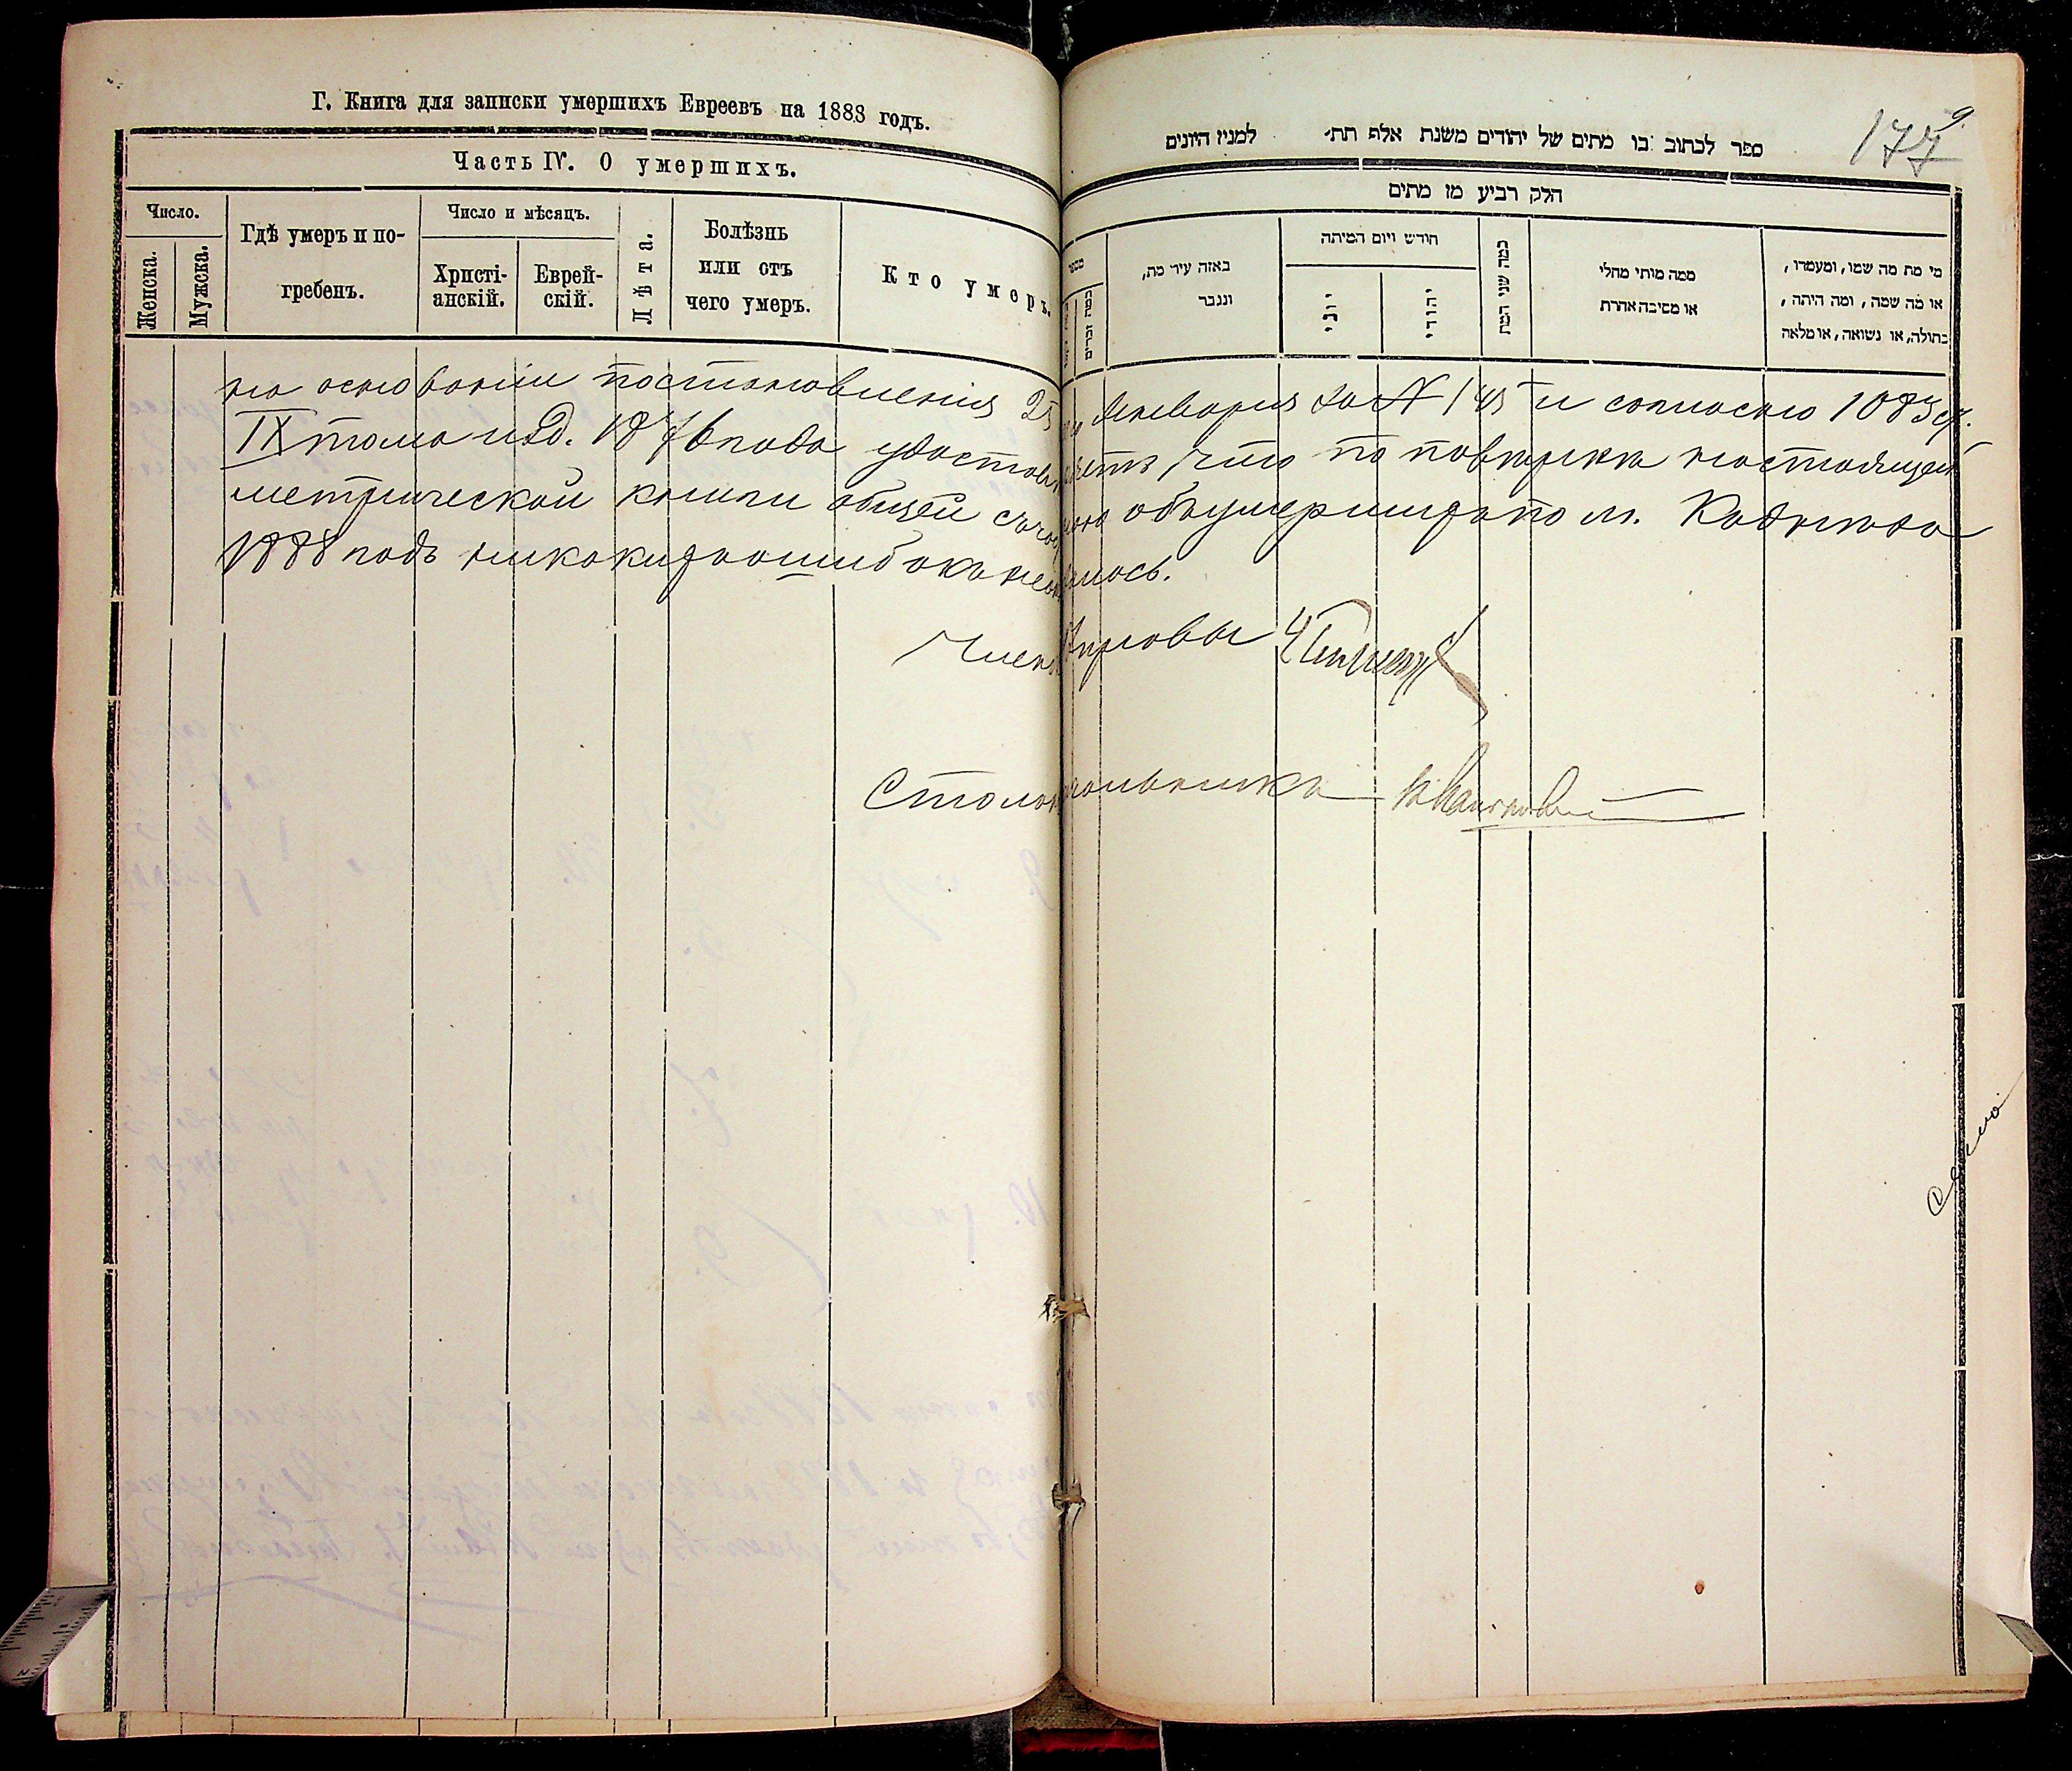 Г. Книга для записки умершихъ Евреевъ на 1888 годъ.
Часть IV. О умершихъ.
Число.
Женска.
Мужска.
Гдѣ умеръ и по-
гребенъ.
Число и мѣсяцъ.
Христі-
анскій.
Еврей-
скій.
Лѣта.
Болѣзнь
или отъ
чего умеръ.
Кто умеръ.
ספר לכתוב בו מתים של יהודים משנת אלף תת׳ למנין היונים
177
9.
חלק רביע מן מתים
כמה זכרים
באזה עיר מת,
ונגבר
חודש ויום המיתה
יוני
יהודי
כמה שני המת
ממה מותי מחלי
או מסיבה אחרת
מי מת מה שמו, ומעמדו,
או מה שמה, ומה היתה,
בתולה, או נשואה, או מלאה
на основаніи постановленія 25 Января за N 145 и согласно 1083 ст.
IX тома изд. 1876 года удостовѣряетъ, что по повѣркѣ настоящей
метрической книги общей съ объ умершихъ по м.
1888 годъ никакихъ ошибокъ не оказалось.
Членъ Управы
Столоначальникъ